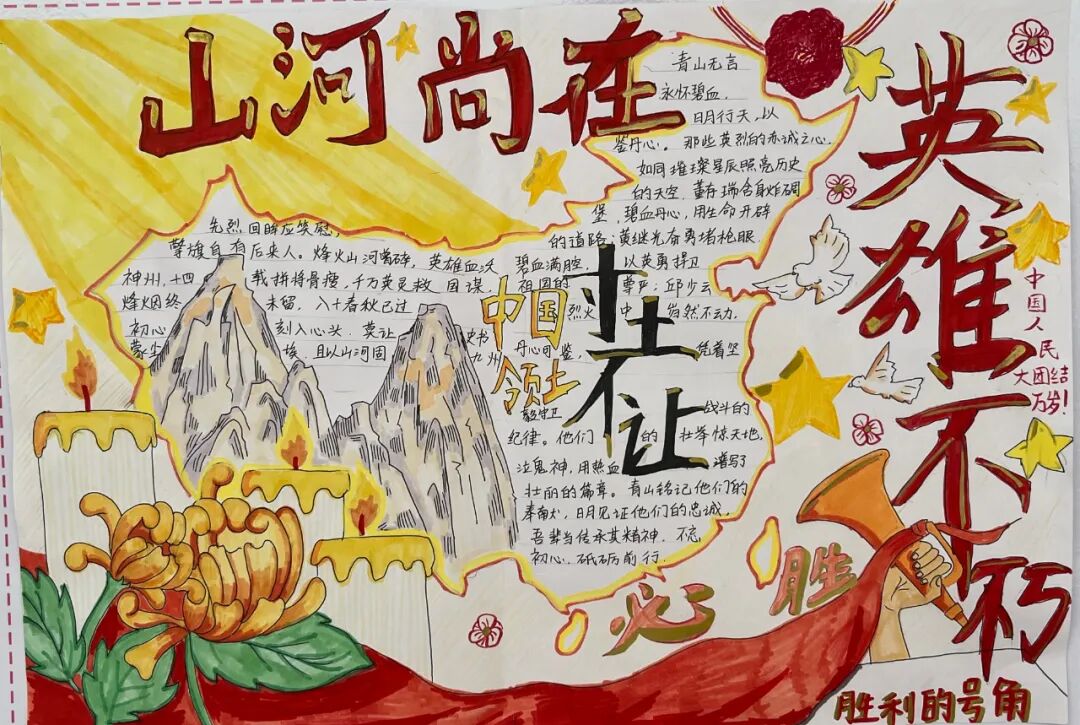 山河尚在
英雄不朽
先烈回眸应笑慰,
擎旗自有后来人。烽火山河
神州,十四载拼将骨瘦,千万英灵救国谋.
烽烟终未留,八十春秋已过
初心刻入心头.莫让史书
蒙尘埃.且以山河固九州
青山无言
永怀碧血.
日月行天,以
鉴丹心。那些英烈的赤诚之心
如同璀璨星辰照亮历史
的天空.董存瑞舍身炸碉
堡.碧血丹心,用生命开辟
的道路;黄继光奋勇堵枪眼.
碧血满腔,以英勇捍卫
祖国的尊严;邱少云
烈火中岿然不动.
丹心可鉴,凭着坚
毅守卫战斗的
纪律。他们的壮举惊天地,
泣鬼神,用热血谱写了
壮丽的篇章。青山铭记他们的
奉献,日月见证他们的忠诚。
吾辈当传承其精神.不忘
初心.砥砺前行.
中国
领土
寸土
不让
中国人民
大团结
万岁!
必胜
胜利的号角